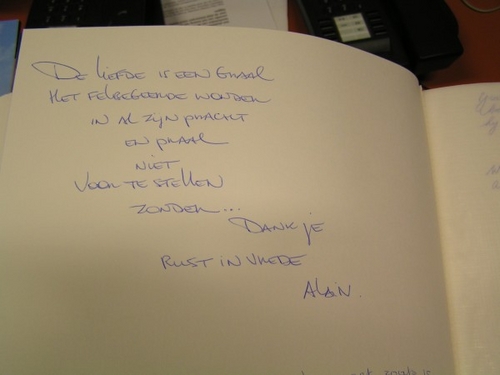 De liefde is een Graal
Het felbegeerde wonder
in al zijn pracht
en praal
niet
voor te stellen
zonder...
Dank je
Rust in vrede
Alain.